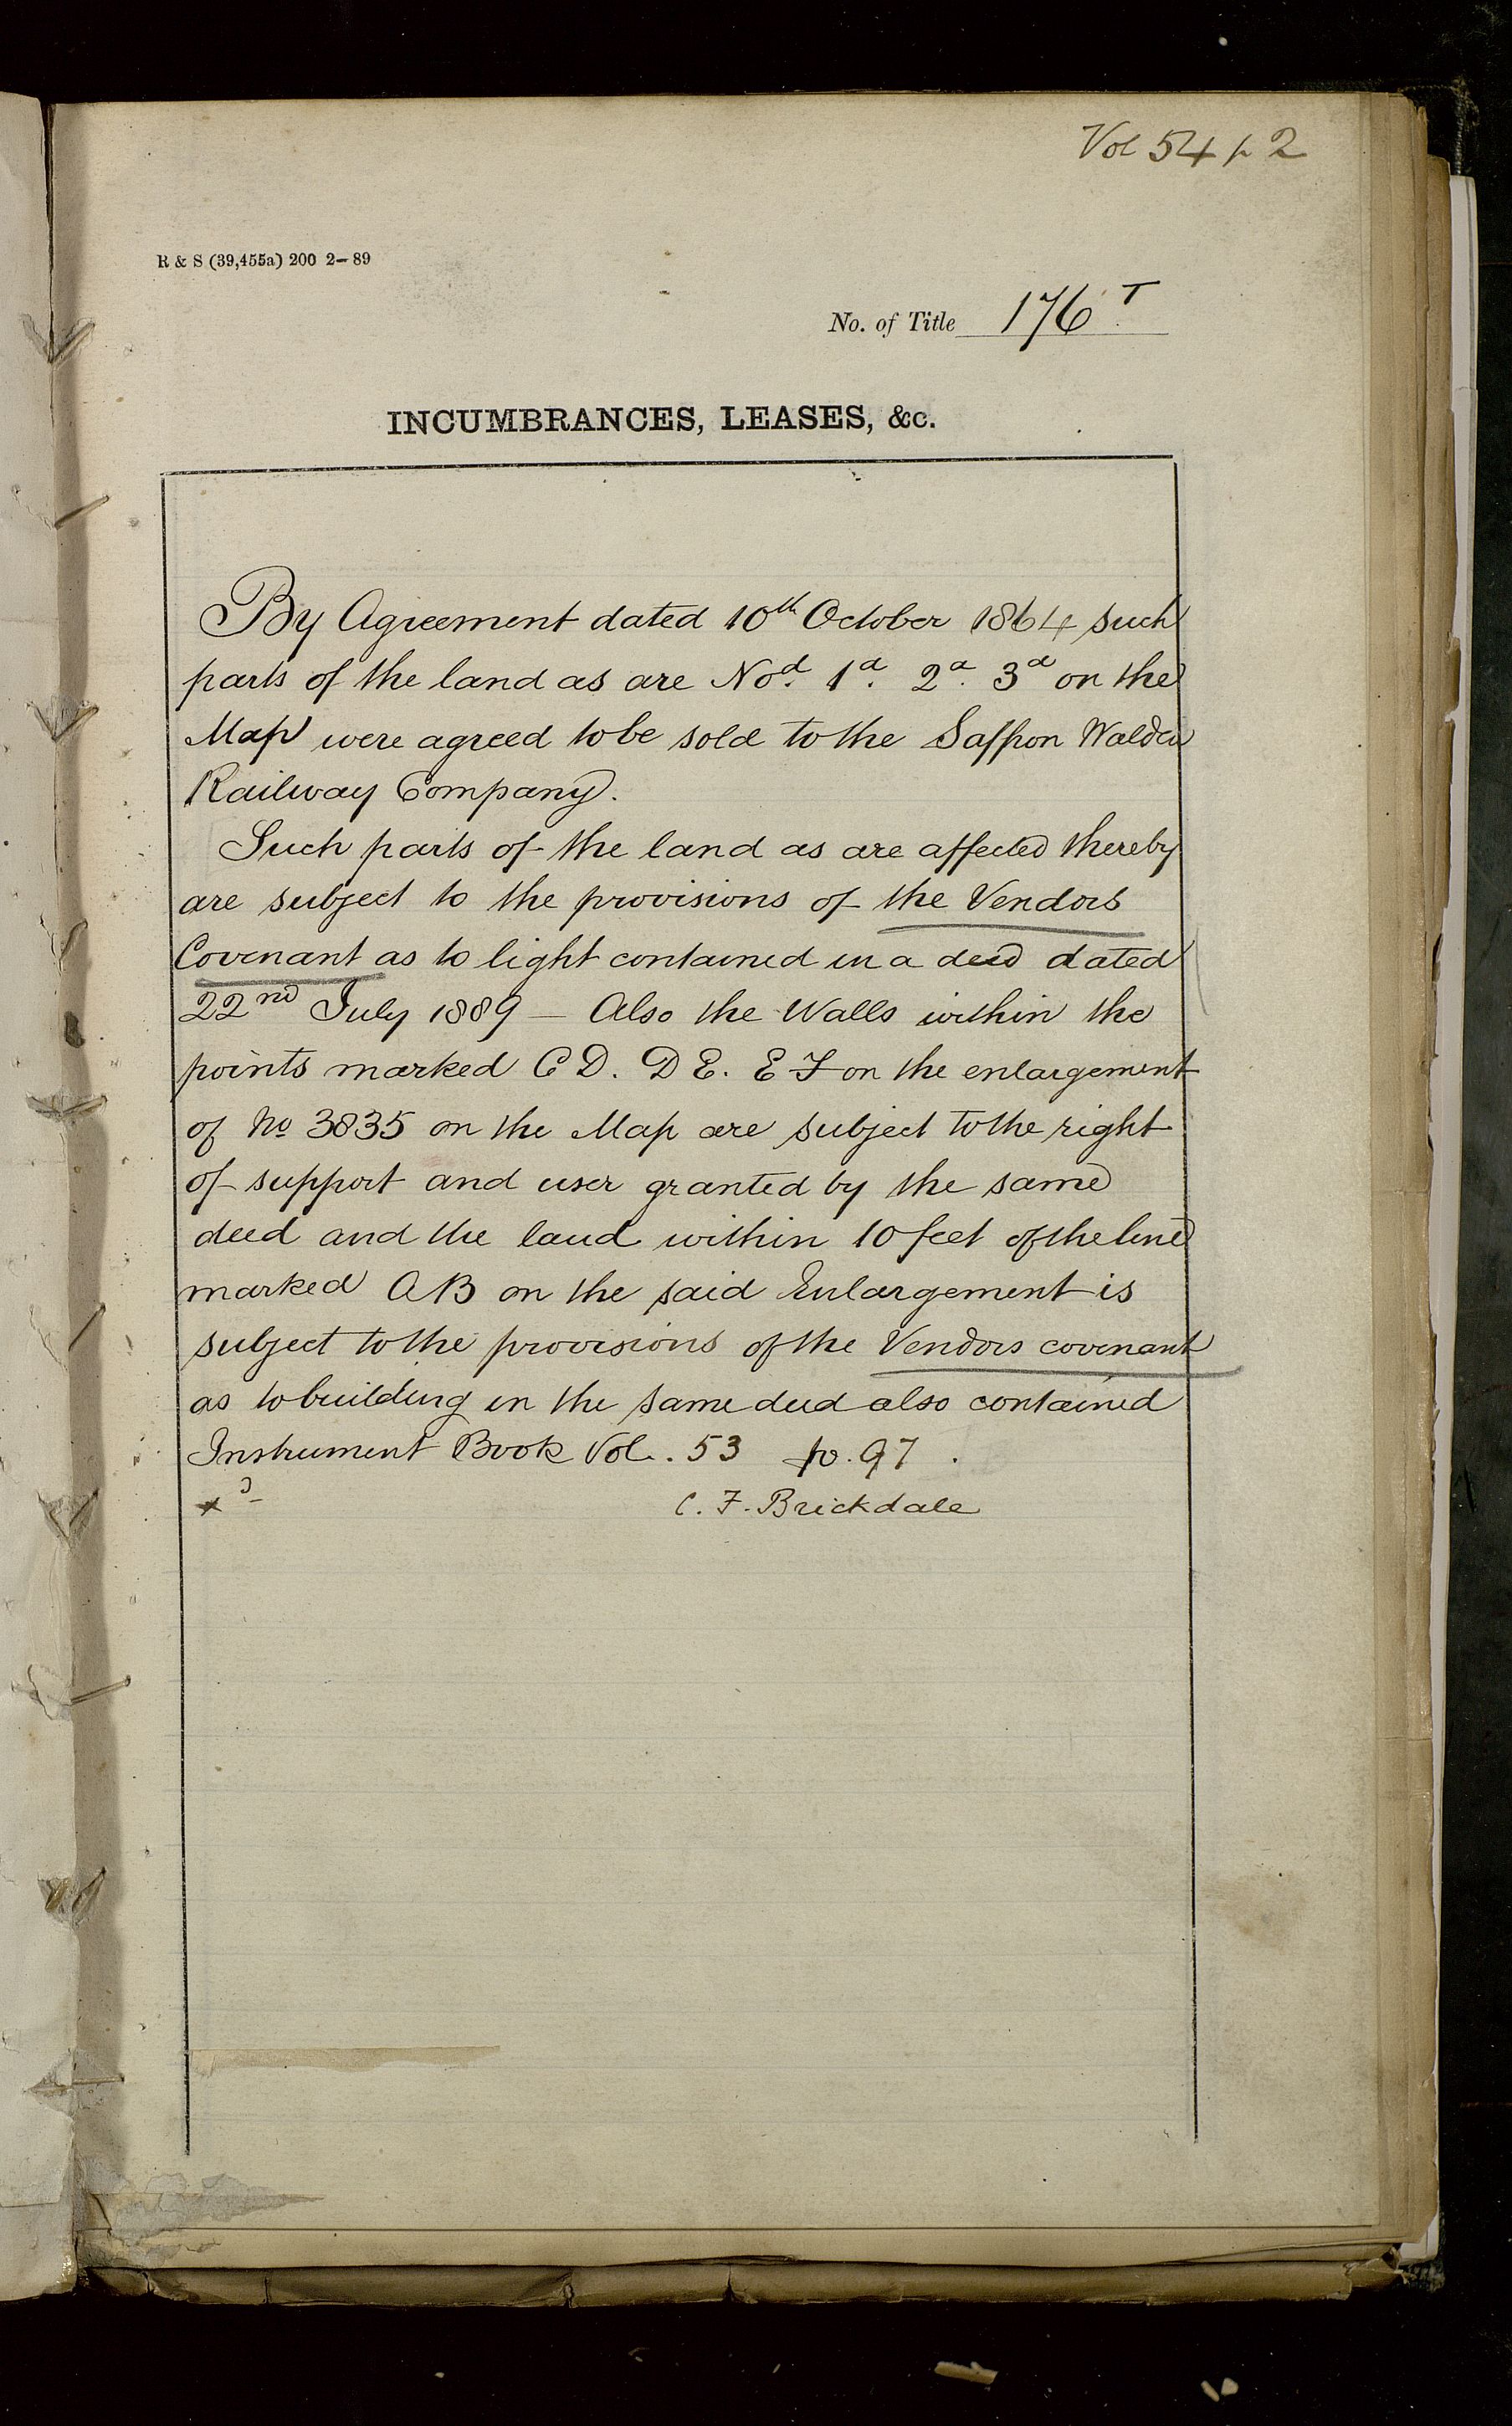 Vol 54 p 2
R & S (39,455a) 200 2–89
No. of Title 176 T
INCUMBRANCES, LEASES, &c.
By Agreement dated 10th October 1864 such
parts of the land as are Nod. 1a. 2a. 3a on the
Map were agreed to be sold to the Saffron Walden
Railway Company.
Such parts of the land as are affected thereby
are subject to the provisions of the Vendors
Covenant as to light contained in a deed dated
22nd July 1889 – Also the Walls within the
points marked C D. D E. E F on the enlargement
of No 3835 on the Map are subject to the right
of support and user granted by the same
deed and the land within 10 feet of the line
marked AB on the said Enlargement is
subject to the provisions of the Vendors covenant
as to building in the same deed also contained
Instrument Book Vol. 53 fo. 97.
C. F. Brickdale